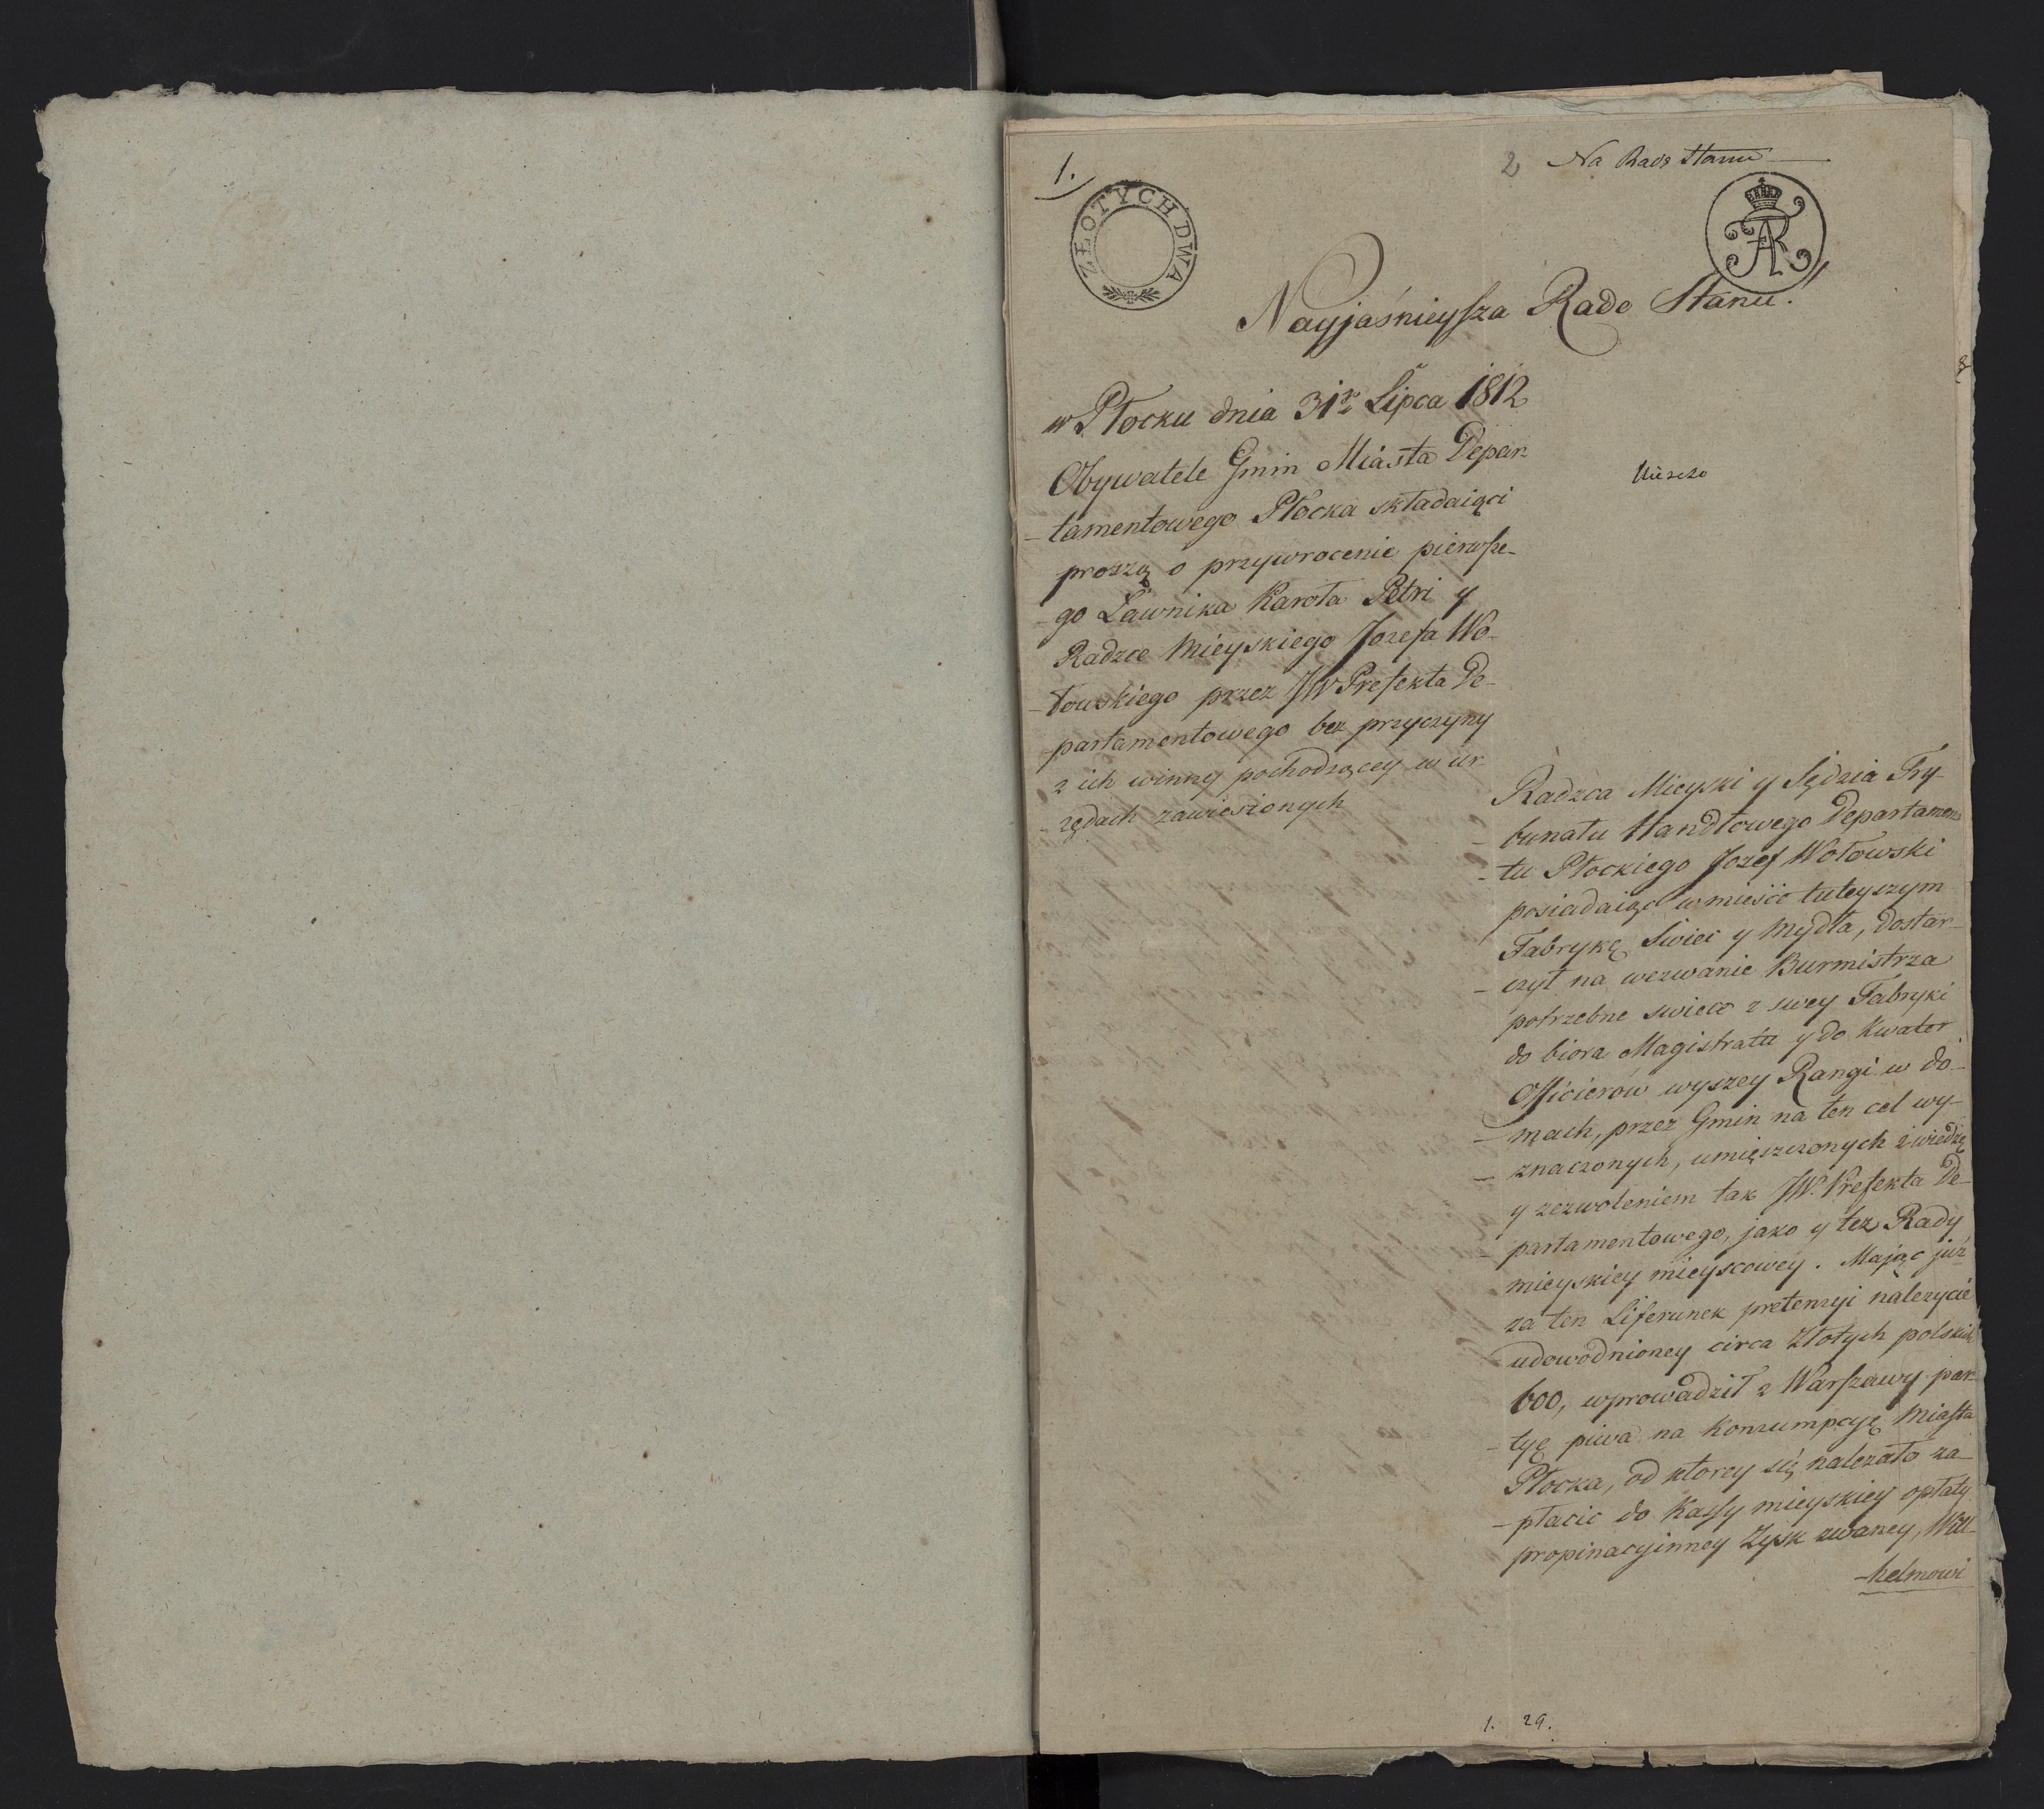 1.
2 Na Radę Stanu
ZŁOTYCH DWA
FAR
Nayjaśnieysza Rado Stanu!
w Płocku dnia 31go Lipca 1812
Obywatele Gmin Miasta Depar-
-tamentowego Płocka składaiąci
proszą o przywrocenie pierwsze-
-go Ławnika Karola Petri y
Radzce Mieyskiego Jozefa Wo-
-łowskiego przez JW Prefekta De-
partamentowego bez przyczyny
z ich winny pochodzącey w ur-
-zędach zawiesionych
Radzca Mieyski y Sędzia Try-
-bunału Handlowego Departamen-
-tu Płockiego Jozef Wołowski
posiadaiąc w mieście tuteyszym
Fabrykę Swiec y Mydła, dostar-
-czył na wezwanie Burmistrza
potrzebne swiece z swey Fabryki
do biora Magistratu y do Kwater
Officierów wyszey Rangi w do-
-mach, przez Gmin na ten cel wy-
-znaczonych, umięszczonych z wiedzą
y zezwoleniem tak JW. Prefekta De-
-partamentowego, jako y tez Rady
mieyskiey mieyscowey. Mając już
za ten Liferunek pretensyi nalezycie
udowodnioney circa Złotych polskich
600, wprowadził z Warszawy par-
-tyę piwa na Konsumpcyę Miasta
Płocka, od ktorey się nalezało za-
-płacic do Kassy mieyskiey opłaty
propinacyinney Zysk zwaney, Wil-
-helmowi
1. 29.